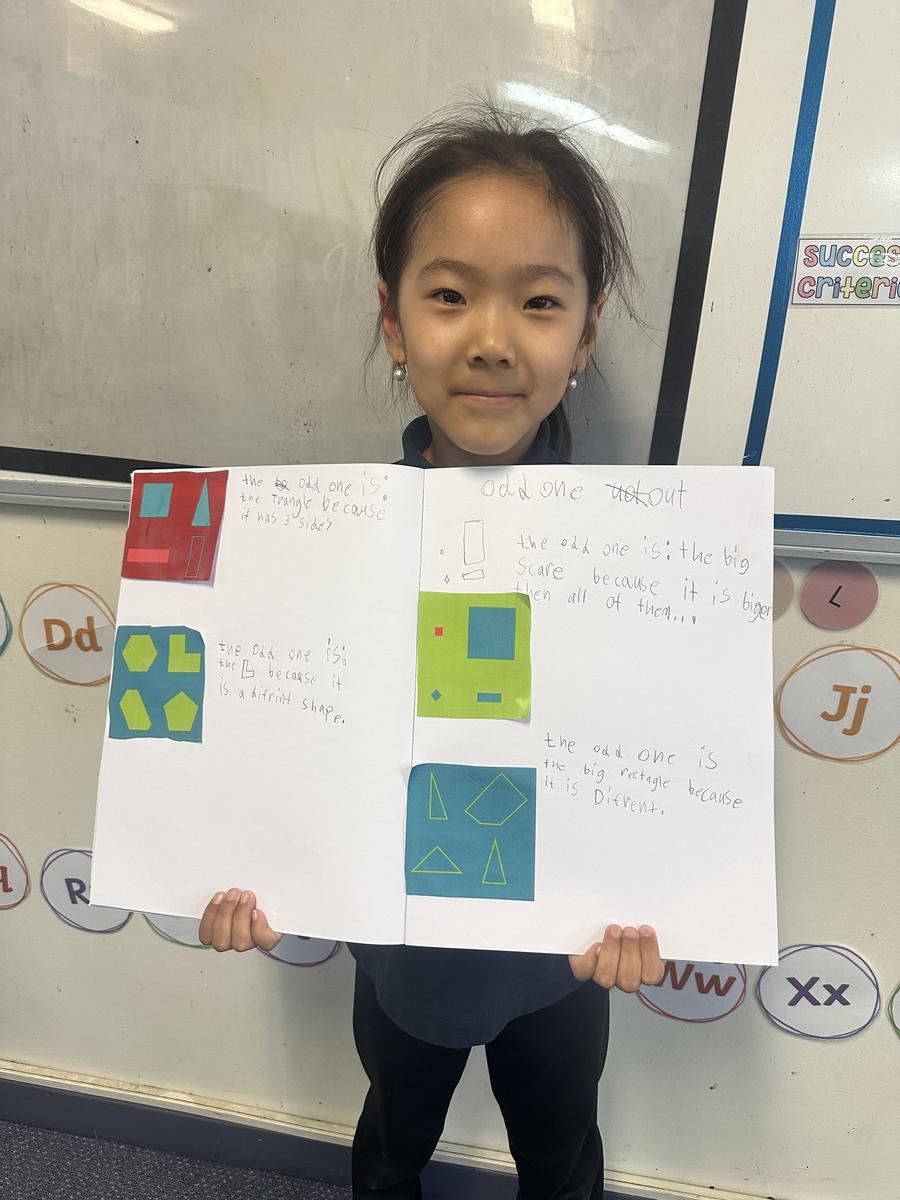 succes
criteri
Dd
L
Jj
R
Ww
Xx
the odd one is:
the Triangle because
it has 3 sides
the odd one is:
the L because it
is a difrint shape.
odd one out
the odd one is: the big
scare because it is biger
then all of them...
the odd one is
the big rectagle because
it is Difrent.